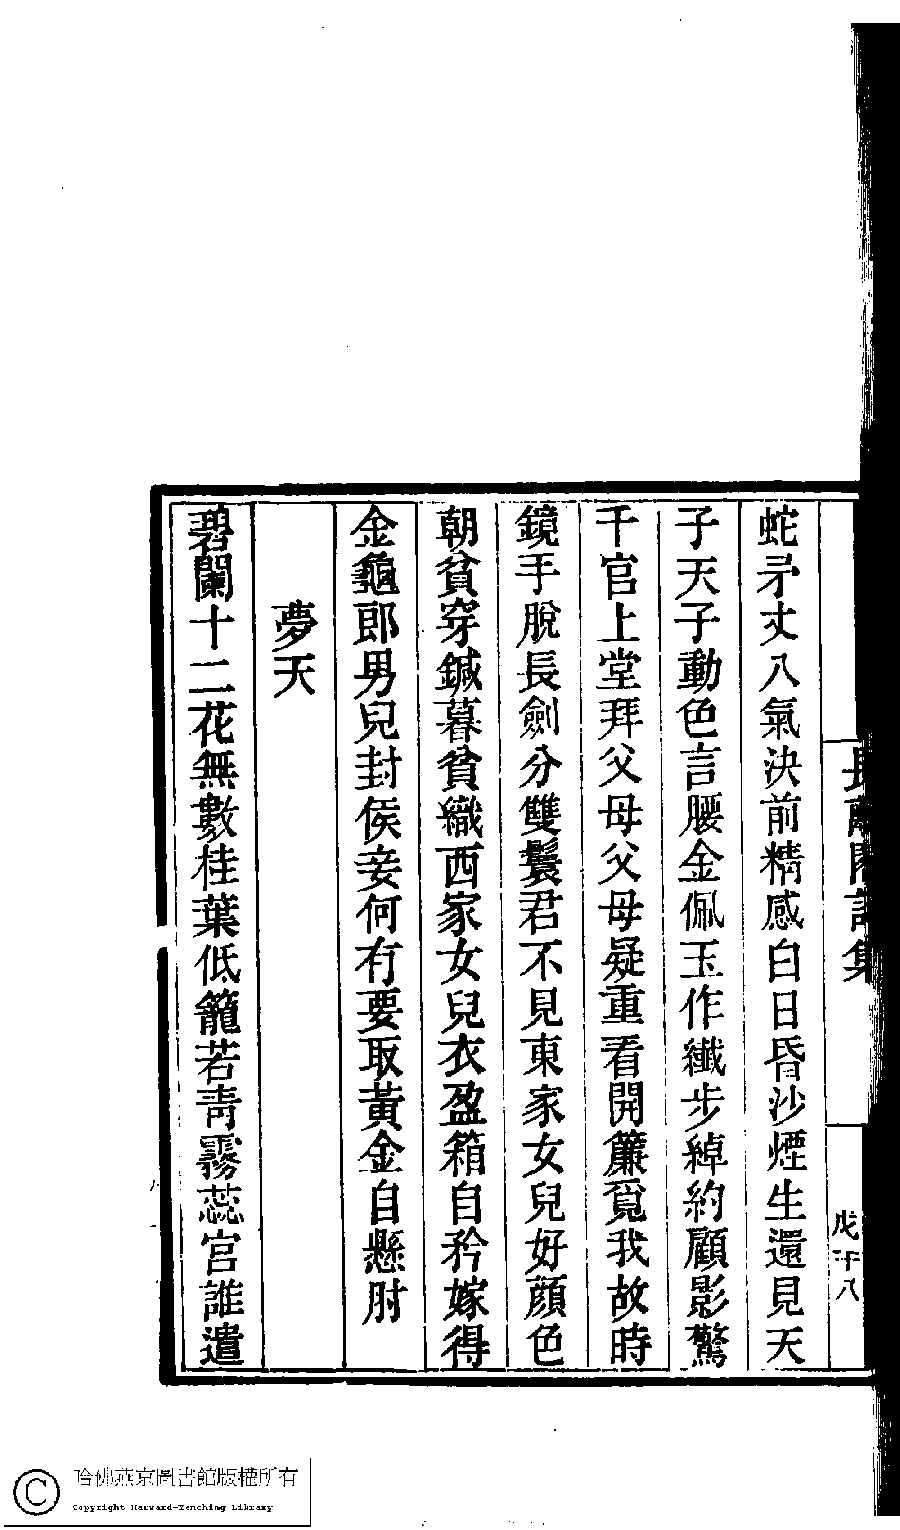 蛇矛丈八氣決前精感白日昏沙煙生還見天
子天子動色言腰金佩玉作纖步綽約顧影驚
千官上堂拜父母父母疑重看開簾覓我故時
鏡手脫長劍分雙鬟君不見東家女兒好顏色
朝貧穿鍼暮貧織西家女兒衣盈箱自矜嫁得
金龜郎男兒封侯妾何有要取黃金自懸肘
夢天
碧闌十二花無數桂葉低籠若青霧蕊宮誰遣
長 閣詩集
戊午八
哈佛燕京圖書館版權所有
Copyright Harvard-Yenching Library